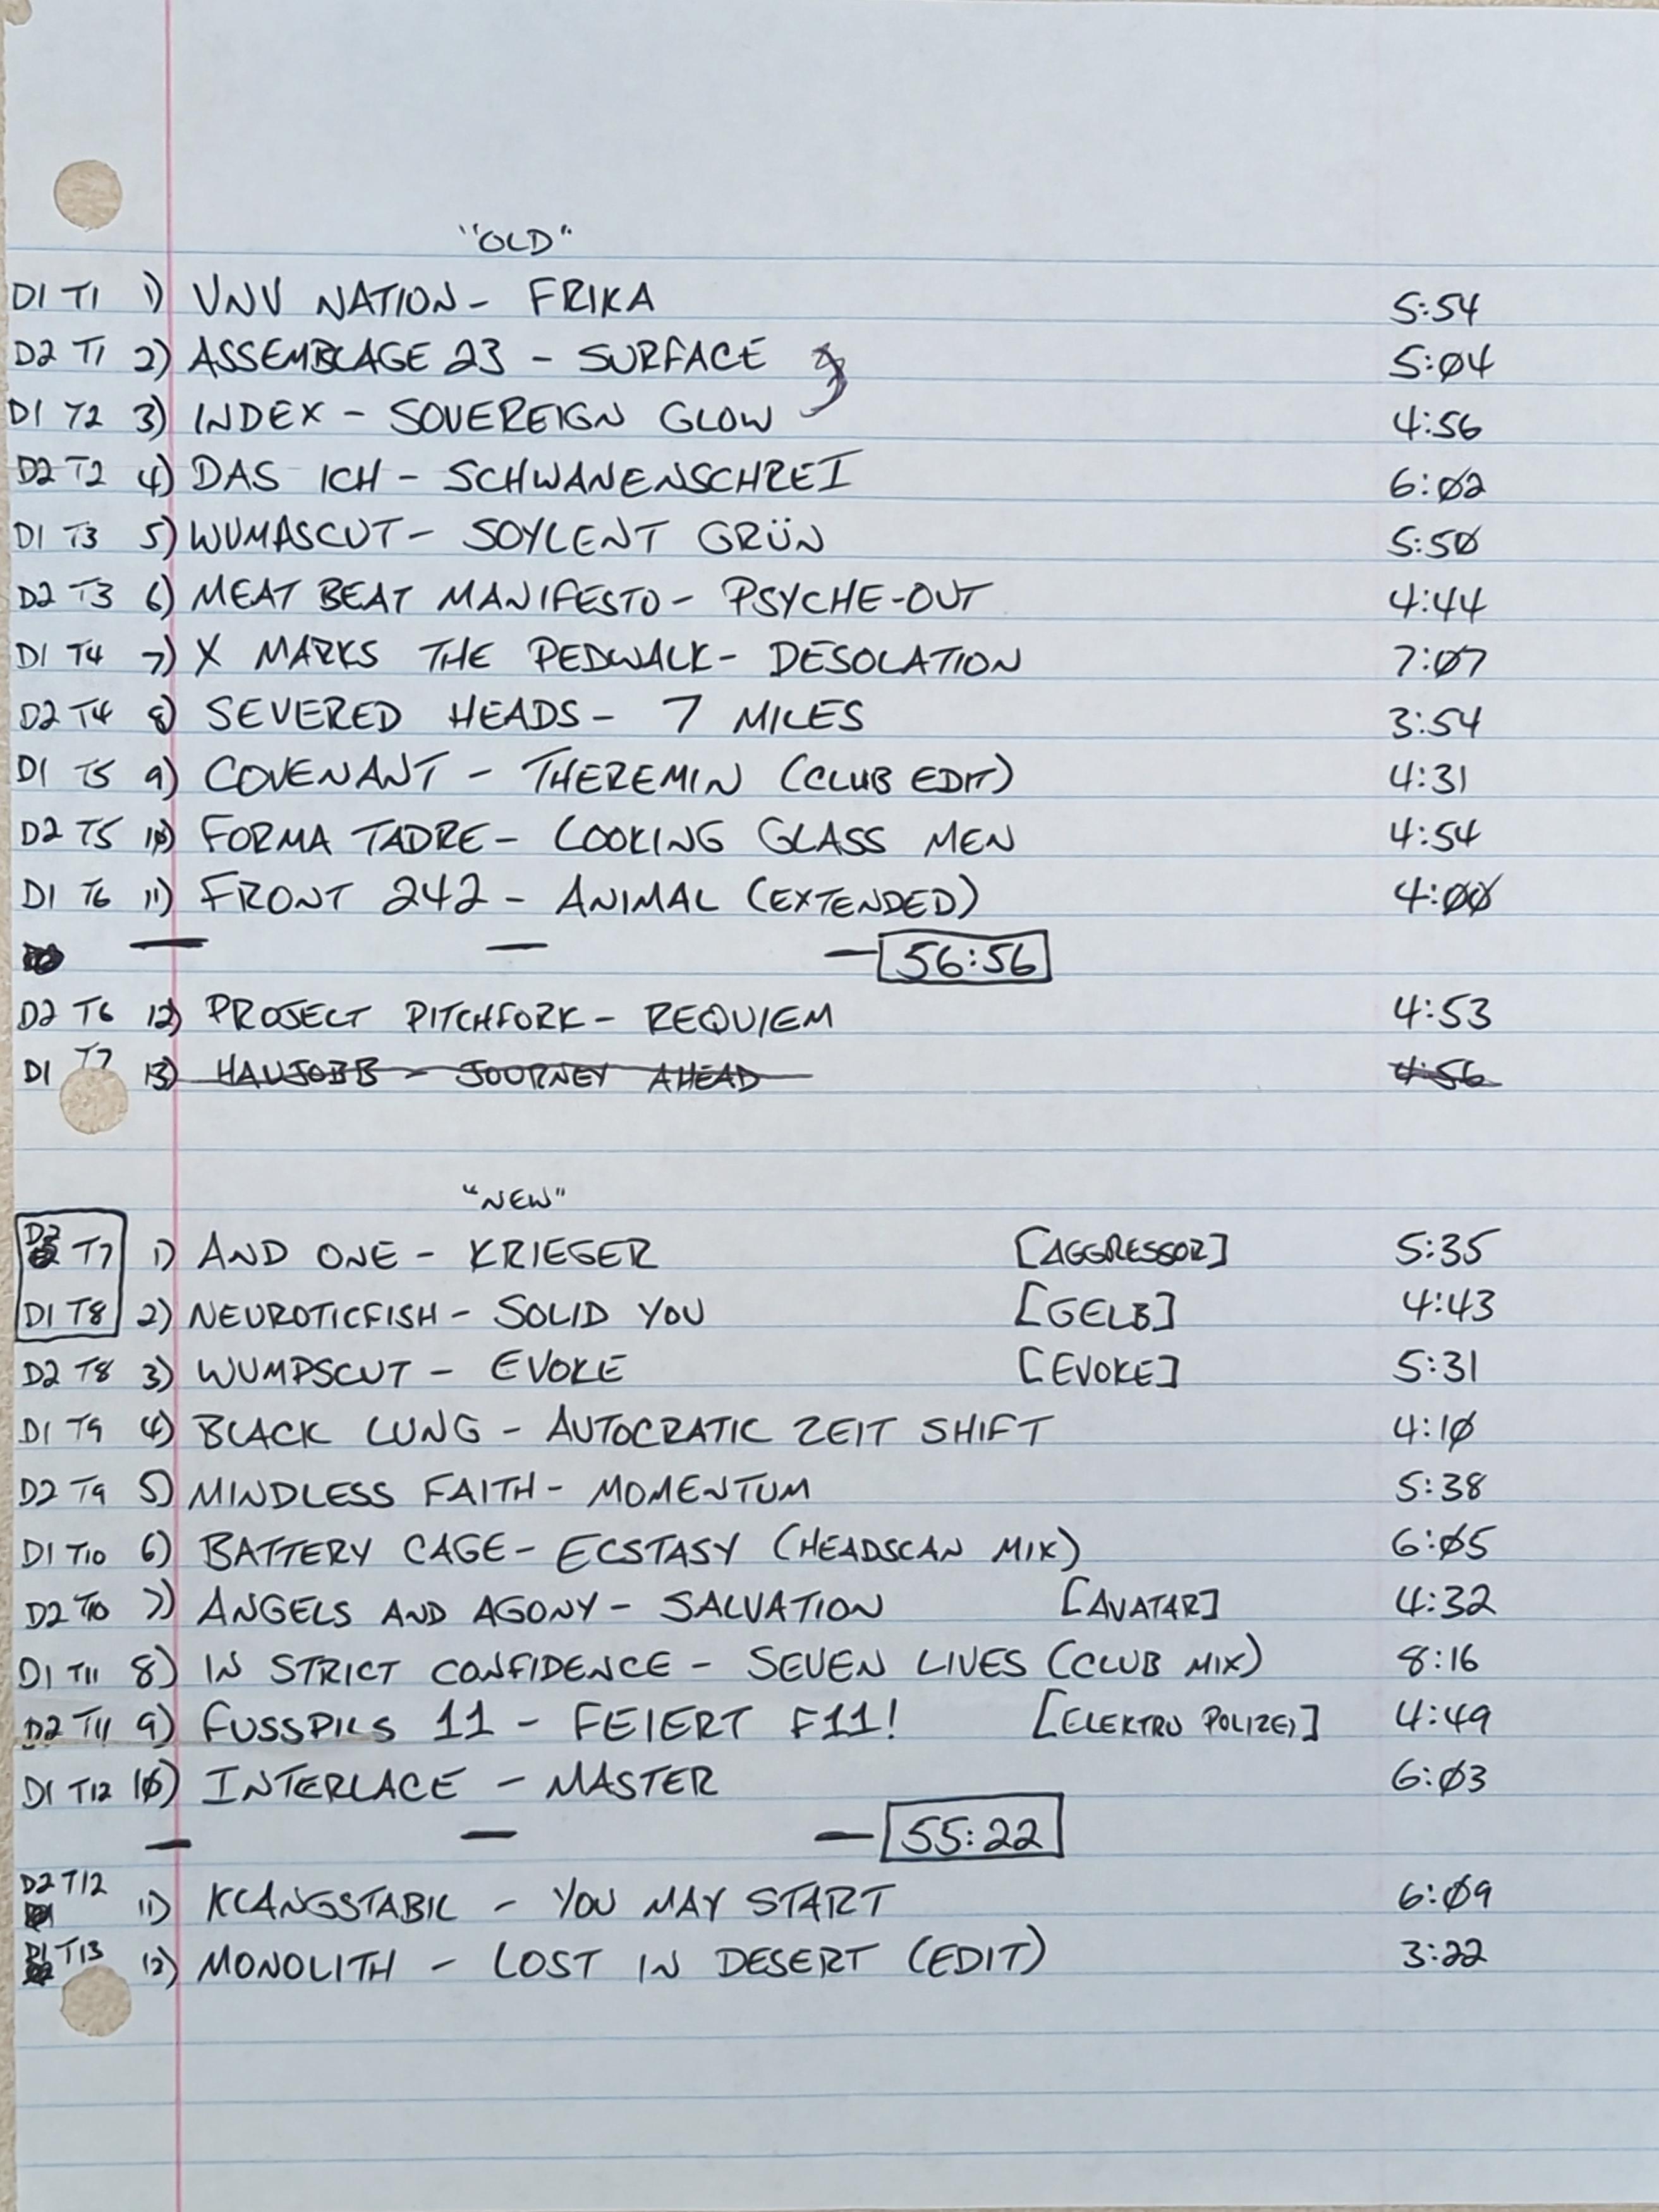 "OLD"
D1 T1 1) VNV NATION - FRIKA 5:54
D2 T1 2) ASSEMBLAGE 23 - SURFACE 5:04
D1 T2 3) INDEX - SOVEREIGN GLOW 4:56
D2 T2 4) DAS ICH - SCHWANENSCHREI 6:02
D1 T3 5) WUMASCUT - SOYLENT GRÜN 5:50
D2 T3 6) MEAT BEAT MANIFESTO - PSYCHE-OUT 4:44
D1 T4 7) X MARKS THE PEDWALK - DESOLATION 7:07
D2 T4 8) SEVERED HEADS - 7 MILES 3:54
D1 T5 9) COVENANT - THEREMIN (CLUB EDIT) 4:31
D2 T5 10) FORMA TADRE - LOOKING GLASS MEN 4:54
D1 T6 11) FRONT 242 - ANIMAL (EXTENDED) 4:00
— — — 56:56
D2 T6 12) PROJECT PITCHFORK - REQUIEM 4:53
D1 T7 13) HAUJOBB - JOURNEY AHEAD 4:56
"NEW"
D2 T7 1) AND ONE - KRIEGER [AGGRESSOR] 5:35
D1 T8 2) NEUROTICFISH - SOLID YOU [GELB] 4:43
D2 T8 3) WUMPSCUT - EVOKE [EVOKE] 5:31
D1 T9 4) BLACK LUNG - AUTOCRATIC ZEIT SHIFT 4:10
D2 T9 5) MINDLESS FAITH - MOMENTUM 5:38
D1 T10 6) BATTERY CAGE - ECSTASY (HEADSCAN MIX) 6:05
D2 T10 7) ANGELS AND AGONY - SALVATION [AVATAR] 4:32
D1 T11 8) IN STRICT CONFIDENCE - SEVEN LIVES (CLUB MIX) 8:16
D2 T11 9) FUSSPILS 11 - FEIERT F11! [ELEKTRO POLIZEI] 4:49
D1 T12 10) INTERLACE - MASTER 6:03
— — — 55:22
D2 T12 11) KLANGSTABIL - YOU MAY START 6:09
D1 T13 12) MONOLITH - LOST IN DESERT (EDIT) 3:22